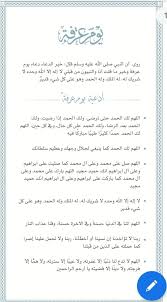 يوم عرفة
روي، أن النبي صلى الله عليه وسلم قال: خير الدعاء دعاء يوم
عرفة وخير ما قلت أنا والنبيون من قبلي لا إله إلا الله وحده لا
شريك له، له الملك وله الحمد وهو على كل شيء قدير
أدعية يوم عرفة
اللهم لك الحمد حتى ترضى، ولك الحمد إذا رضيت، ولك
الحمد بعد الرضا، ولك الحمد على كل حال
اللهم لك الحمد كما ينبغي لجلال وجهك وعظيم سلطانك
اللهم صل على محمد وعلى آل محمد كما صليت على إبراهيم
وعلى آل إبراهيم إنك حميد مجيد
آل محمد كما باركت على إبراهيم وعلى آل إبراهيم إنك حميد
مجيد
لا إله إلا الله وحده لا شريك له، له الملك وله الحمد وهو على كل
شيء قدير
اللهم آتنا في الدنيا حسنة وفي الآخرة حسنة، وقنا عذاب النار
ربنا لا تؤاخذنا إن نسينا أو أخطأنا، ربنا ولا تحمل علينا إصرا
كما حملته على الذين من قبلنا
اللهم لا تدع لنا ذنبا إلا غفرته، ولا
إلا قضيتها يا أرحم الراحمين